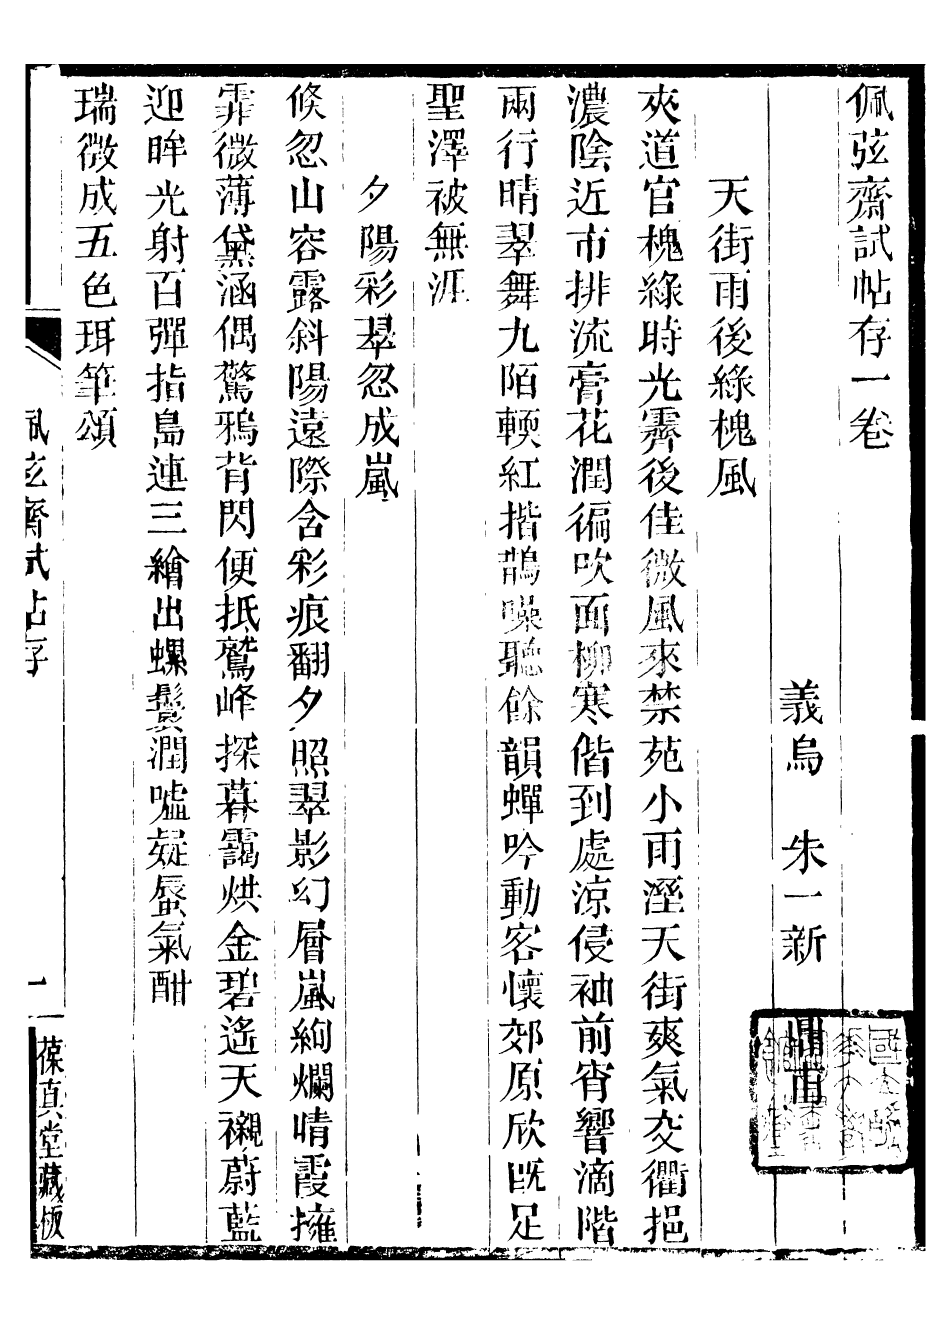 佩弦齋試帖存一卷
義烏 朱一新 鼎甫
天街雨後綠槐風
夾道官槐綠時光霽後佳微風來禁苑小雨溼天街爽氣交衢挹
濃陰近市排流膏花潤徧吹面柳寒偕到處涼侵袖前宵響滴階
兩行晴翠舞九陌輭紅揩鵲噪聽餘韻蟬吟動客懷郊原欣旣足
聖澤被無涯
夕陽彩翠忽成嵐
倏忽山容露斜陽遠際含彩痕翻夕照翠影幻層嵐絢爛晴霞擁
霏微薄黛涵偶驚鴉背閃便抵鷲峰探暮靄烘金碧遙天襯蔚藍
迎眸光射百彈指島連三繪出螺鬟潤噓疑蜃氣酣
瑞徵成五色珥筆頌
佩弦齋試帖存
一
葆真堂藏板